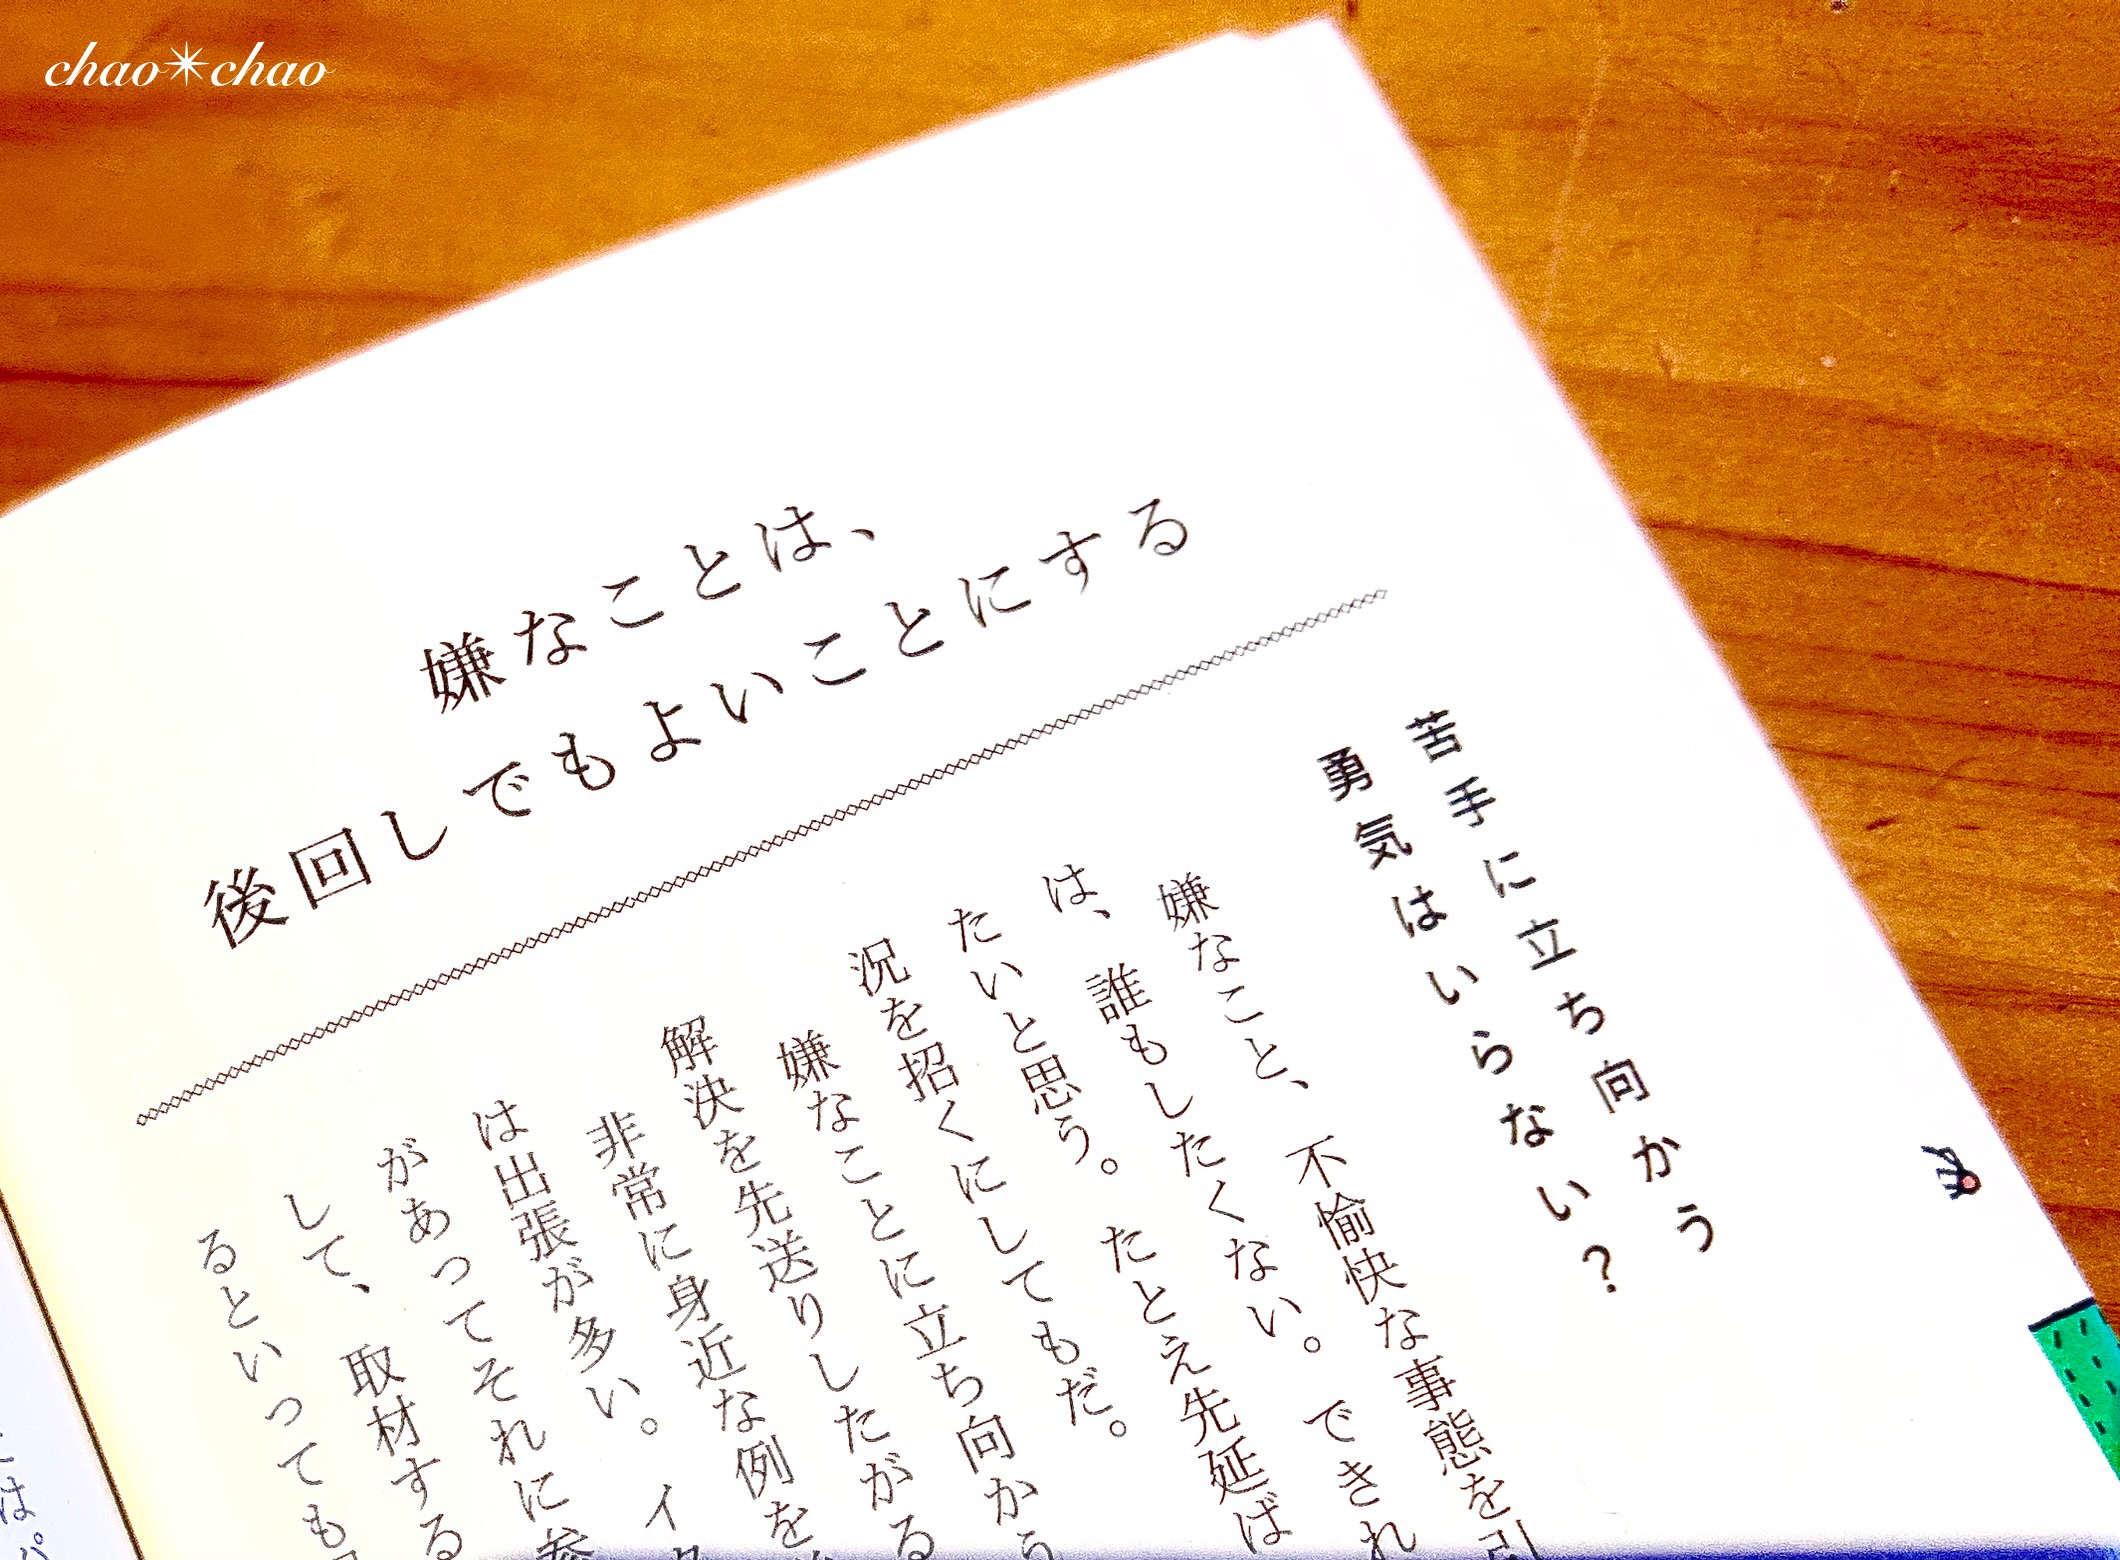 chao✴chao
嫌なことは、
後回しでもよいことにする
苦手に立ち向かう
勇気はいらない？
嫌なこと、不愉快な事態を引
は、誰もしたくない。できれ
たいと思う。たとえ先延ば
況を招くにしてもだ。
嫌なことに立ち向から
解決を先送りしたがる
非常に身近な例を
は出張が多い。イタ
があってそれに参
して、取材する
るといっても